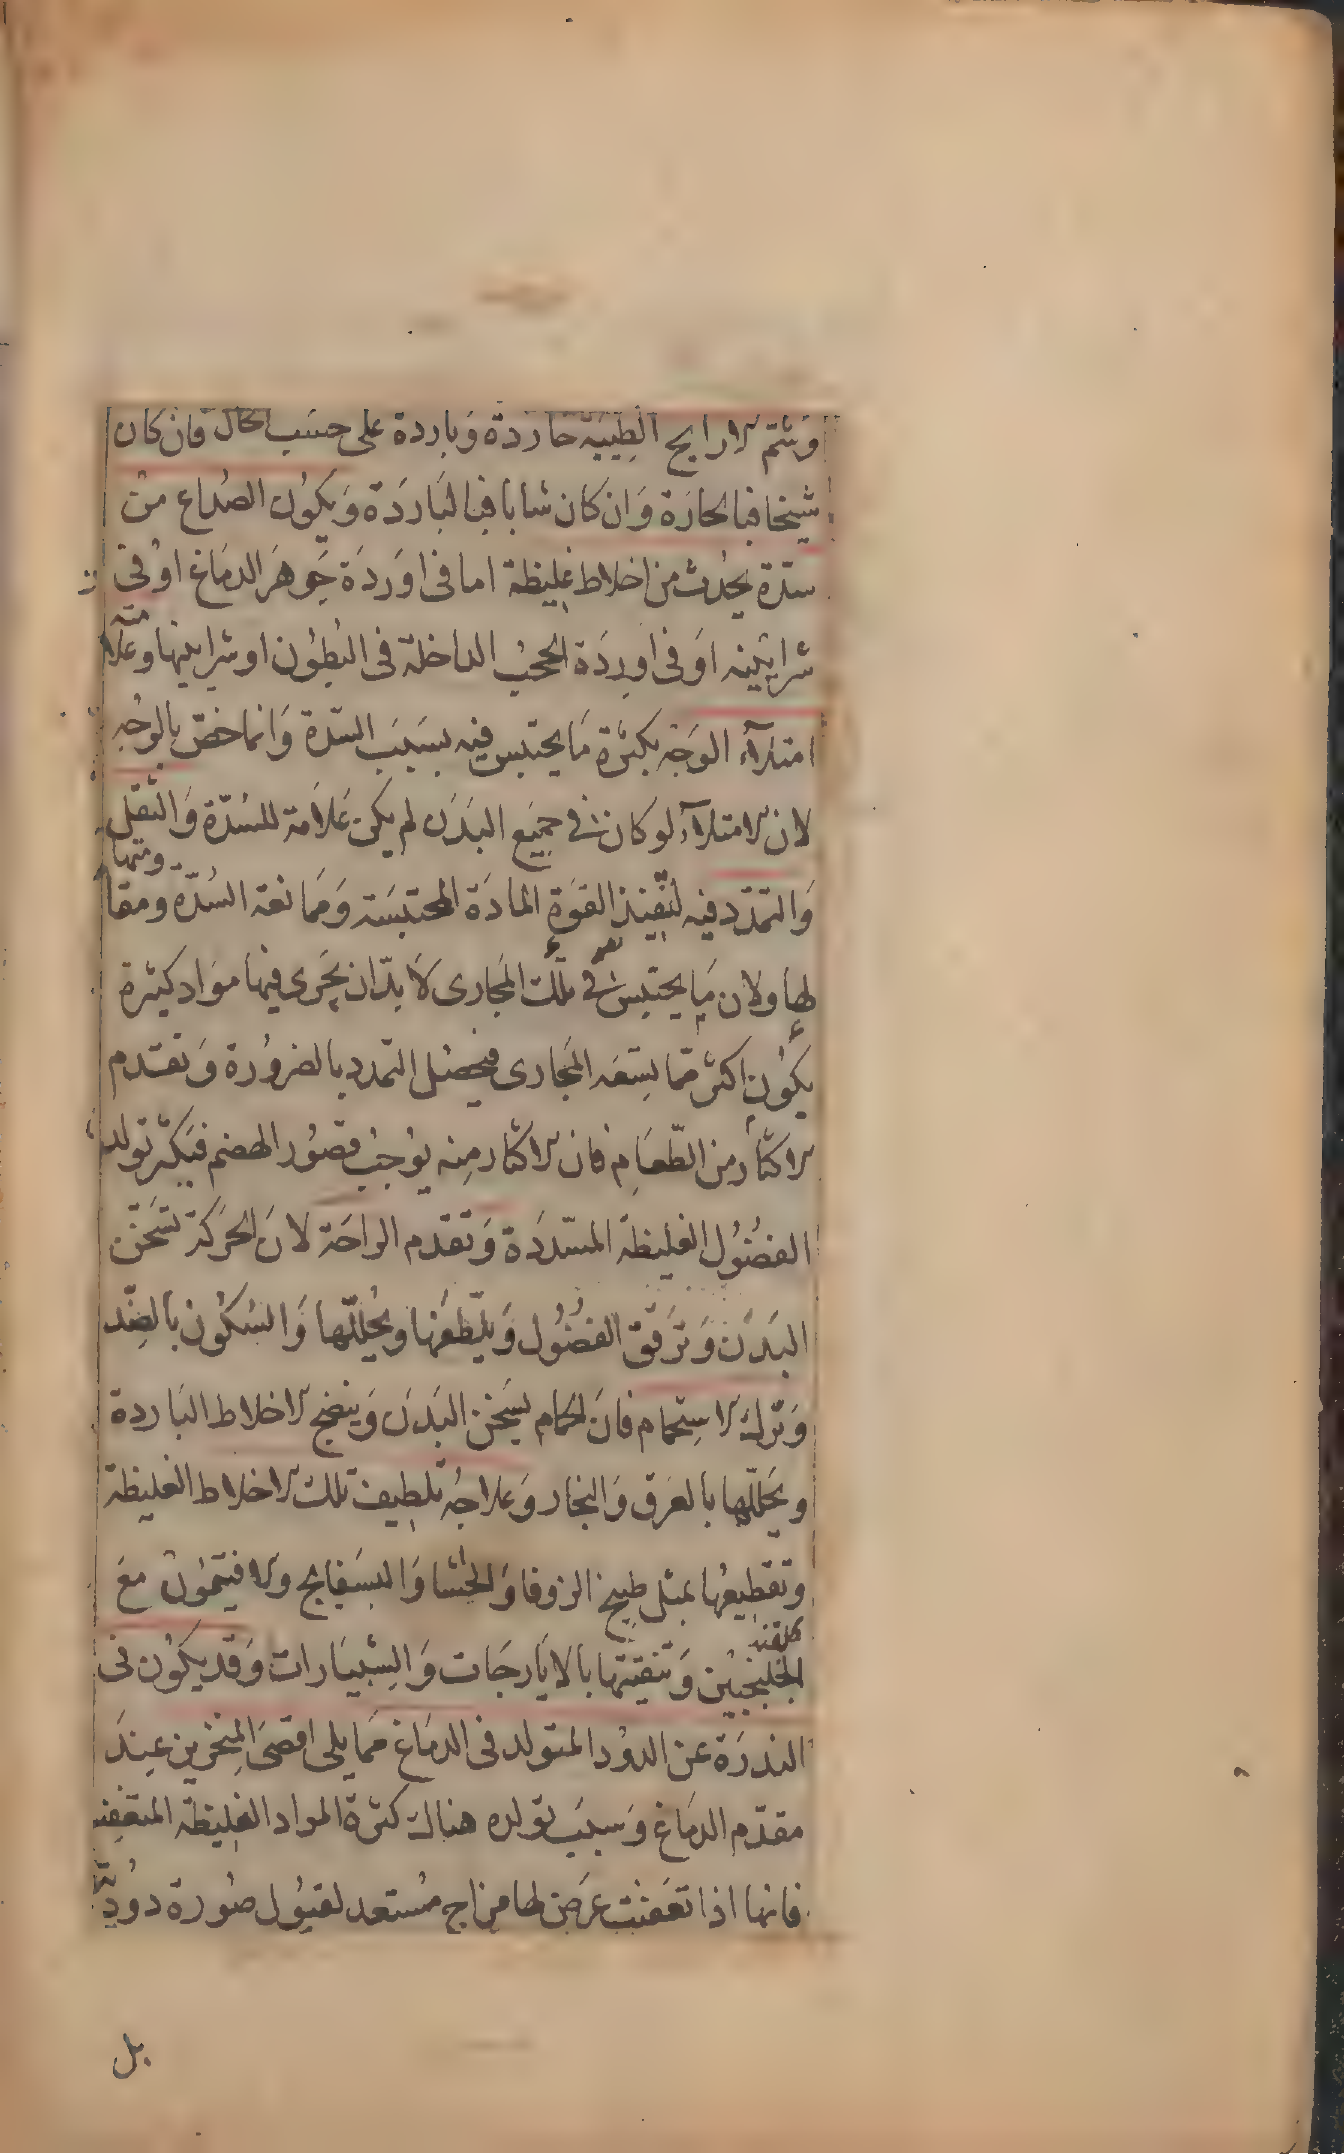 وَشمّ الارايح الطِيبَة حَارَدة وَبَاردة على حسَب الحَال فان كان
شيخا فبالحارَة وَان كَان شابا فبالبَاردَة وَيكوُن الصُداع من
سدّة يحدُث من اخلاط غليظة اما فى اوَردَة جَوهَر الدمَاغ اوْ فى
شرايينه اوَ فى اورِدَة الحُجبُ الداخلة فى البُطوُن او شرايينها وعَلَامته
امتلآء الوَجْه بكثرُة مَا يحتبس فيه بسَبَب السّدَة وَانما خصّ بالوجْه
لان الامتلآء لو كان فى جميَع البَدَن لم يكن عَلاَمَة للسُدّة وَالثقل
وَالتمدّد فيه لتنفيذ القوَة المادَة المحتبسَة وَممَانعَة السُدّة ومقاومتها
لها ولان مَا يحتبس فى تلك المجَارى لَا بدّ ان يجَرى فيها موَاد كثيرة
يكوُن اكثر ممّا يسَعَه المجَارى فيحصُل التمدد بالضروُرة وَتقدم
الاكثَار من الطّعَام فان الاكثار منه يوُجبُ قصوُر الهضم فيكثر تولد
الفضُوُل الغليظة المسّددَة وَتقدّم الراحَة لانَ الحَركَة تسَخّن
البَدَن وَترَقق الفضُوُل وَيلّطفهَا ويُحللّها وَالسُكوُن بالضِّد
وَترك الاستحمام فانَ الحمَام يسَخن البَدَن وَينضج الاخلاط البَاردة
ويحَللّها بالعَرَق وَالبخار وَعلاجُه تلطيف تلك الاخلاط الغليظة
وتقطيعهُا بمثل طبيخ الزوفا وَالحَاشا وَالبسَفايج وَالافتيمُون معَ
الجلنجبيْن كلقند وَتنقيتها بالايَارجَات وَالشبيَارات وَقد يكوُن فى
الندرَة عن الدوُد المتولد فى الدمَاغ ممَا يلى اقصَى المنخرين عِندَ
مقدّم الدمَاغ وَسبَب تولده هناك كثرة المواد الغليظة المتعفِنة
فانها اذا تعَفنت عَرَض لها مزاج مُستعد لقبُول صُورة دوُديّة
بل